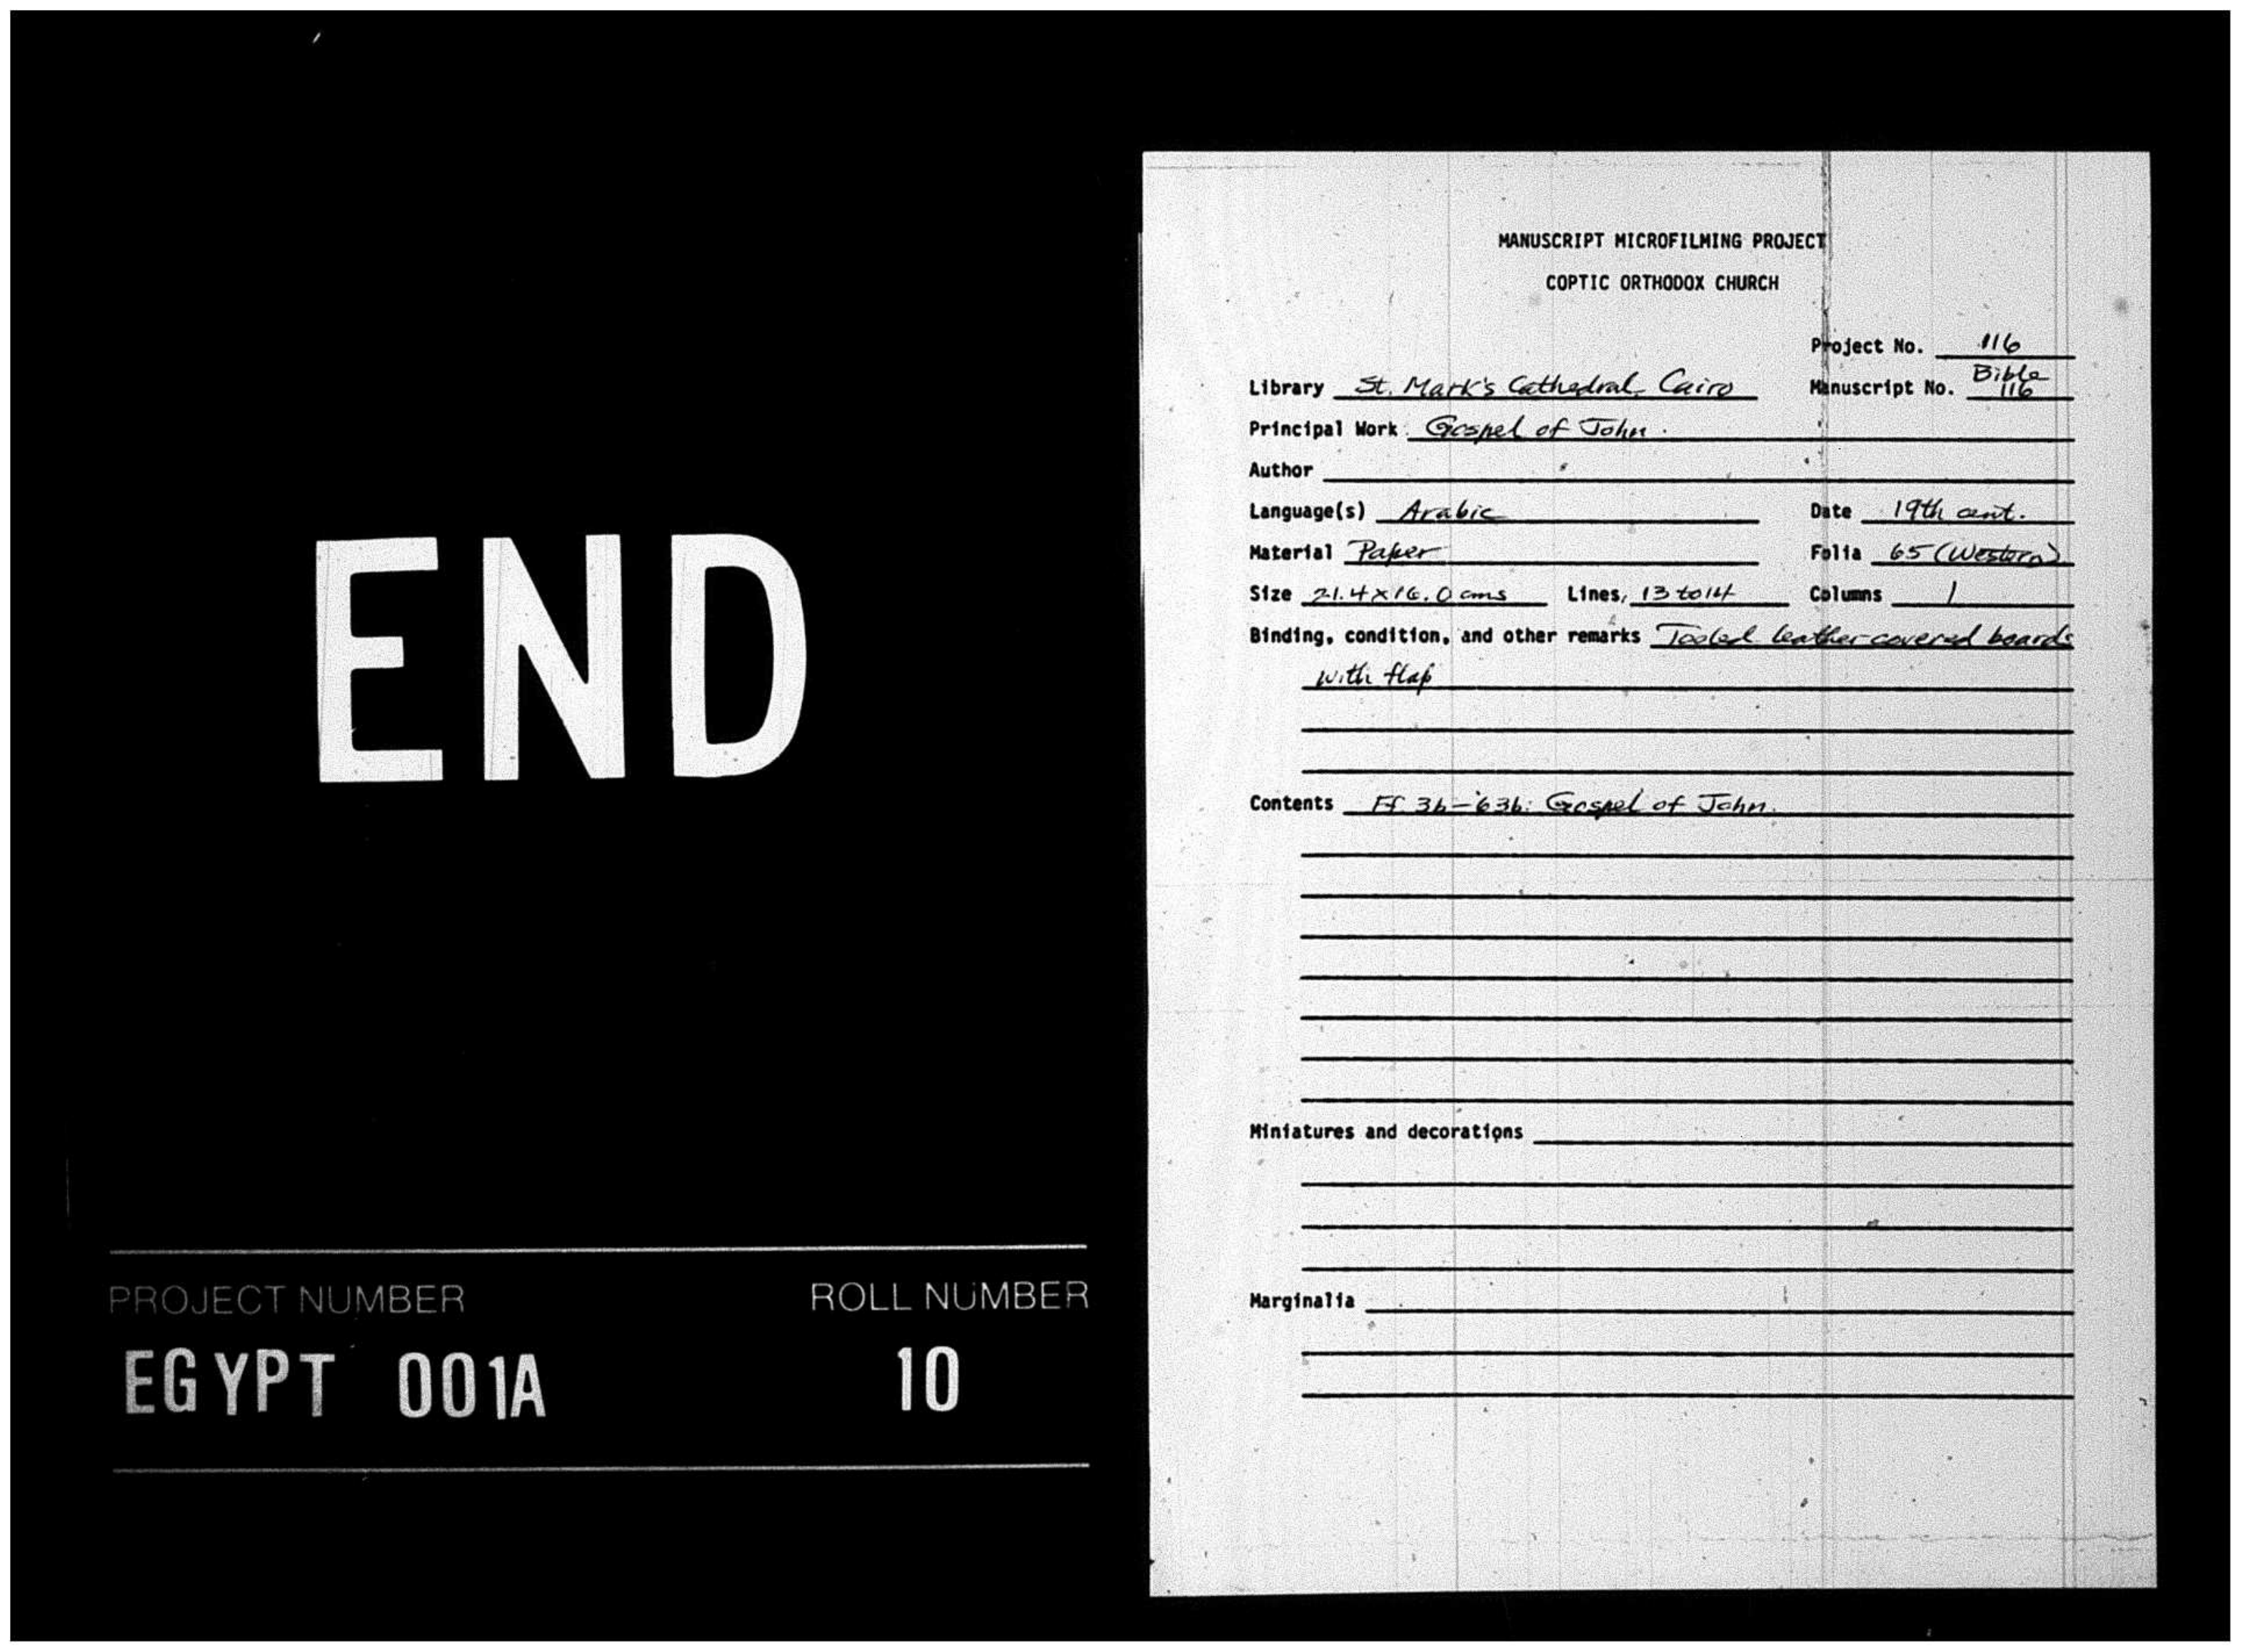 END
PROJECT NUMBER ROLL NUMBER
EGYPT 001A 10
MANUSCRIPT MICROFILMING PROJECT
COPTIC ORTHODOX CHURCH
Project No. 116
Library St. Mark's Cathedral, Cairo Manuscript No. Bible 116
Principal Work Gospel of John.
Author
Language(s) Arabic Date 19th cent.
Material Paper Folia 65 (Western)
Size 21.4 x 16.0 cms Lines, 13 to 14 Columns 1
Binding, condition, and other remarks Tooled leather covered boards
with flap
Contents Ff. 3b-63b: Gospel of John.
Miniatures and decorations
Marginalia